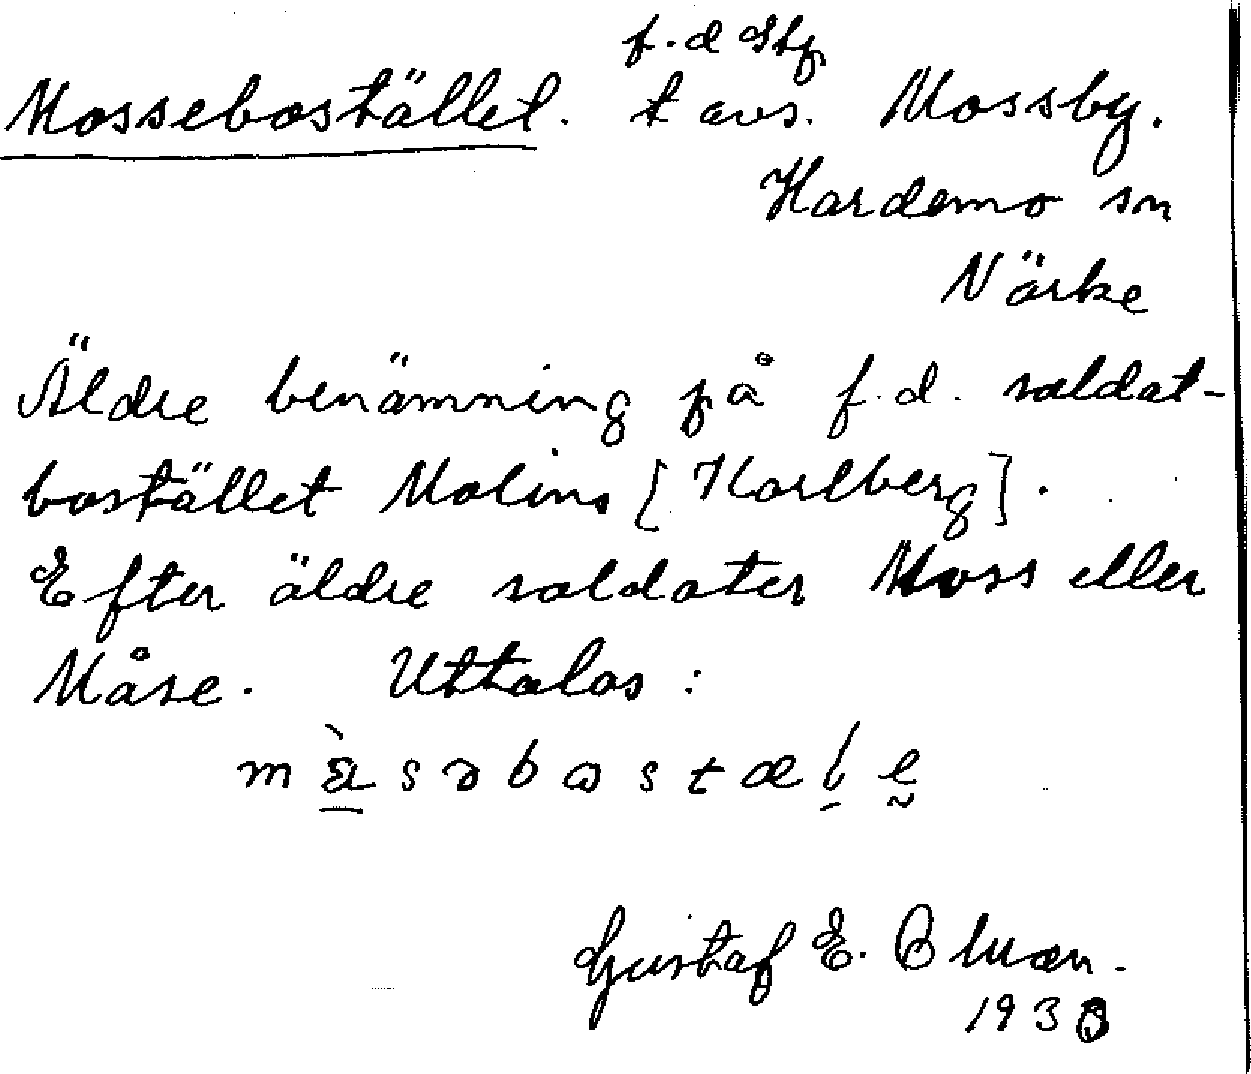 f.d Stf
Mossebostället. t avs. Mossby.
Hardemo sn
Närke
Äldre benämning på f.d. soldat-
bostället Molins [Karlberg].
Efter äldre soldater Moss eller
Måse. Uttalas:
Gustaf E. Bluan.